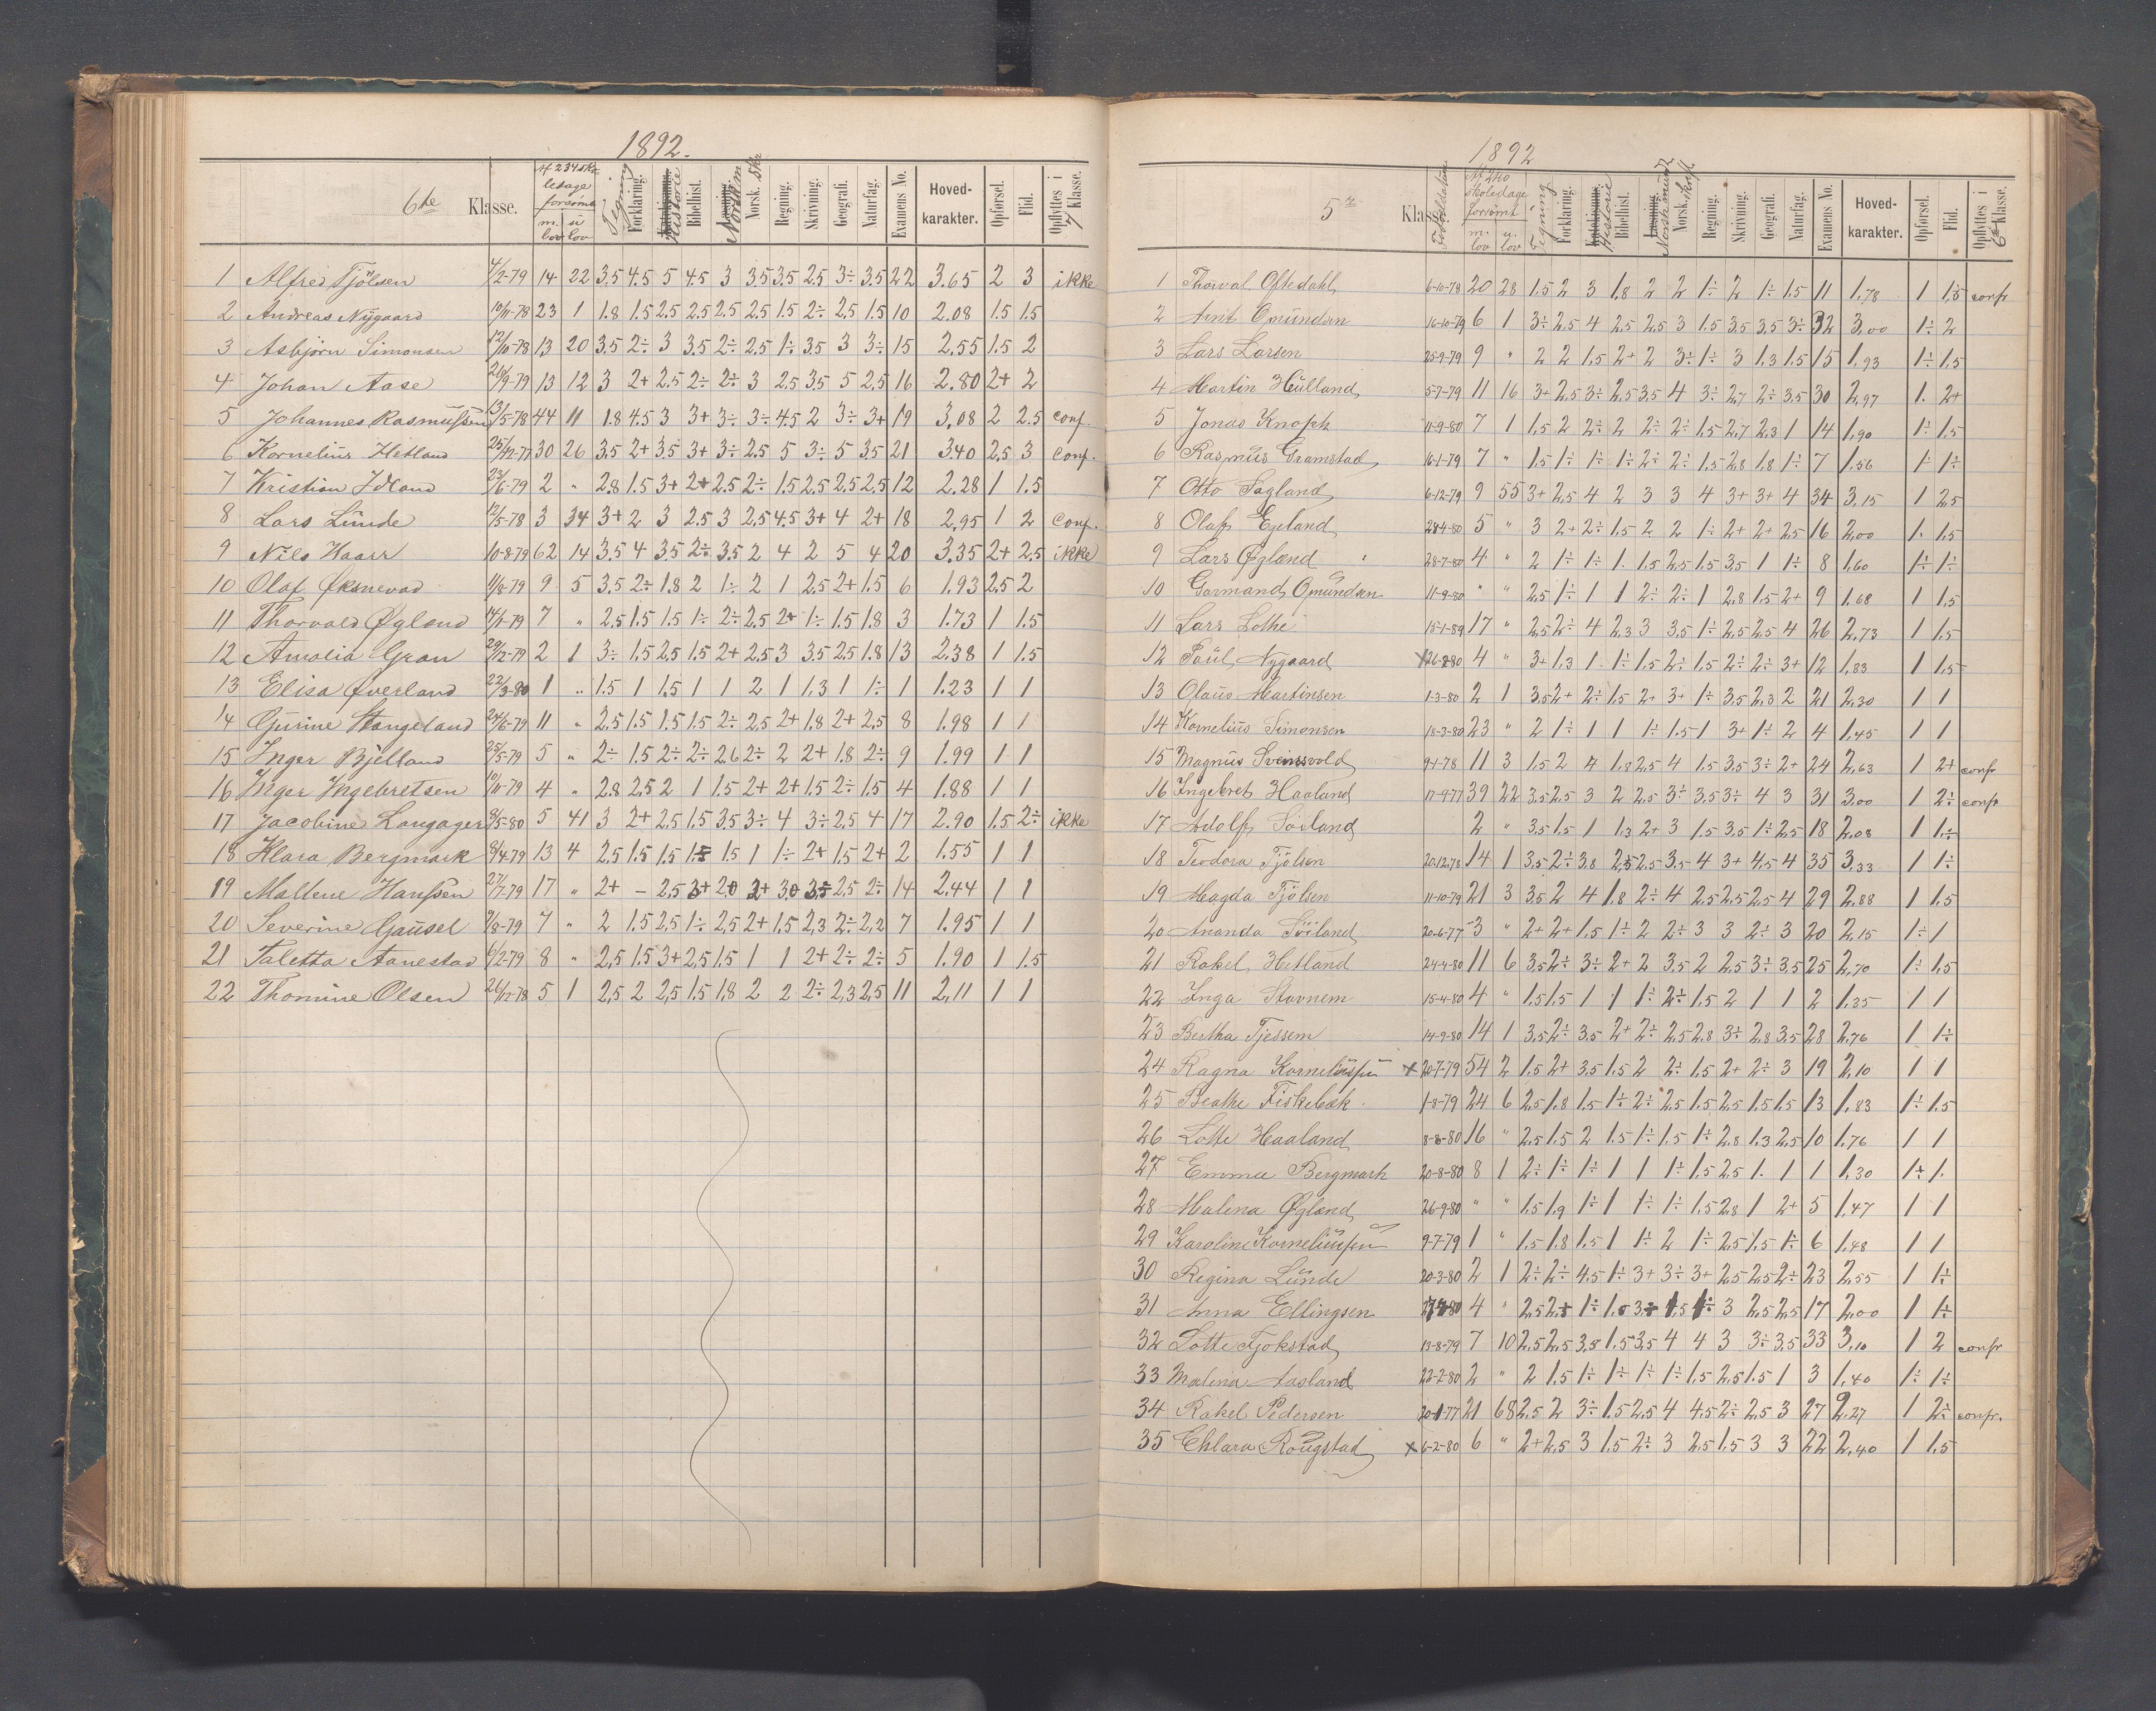 1892.
6te Klasse. Af 234 Sko- ledage forsømt m. lov u. lov Tegning Forklaring. Historie Bibelhist. Norsk m Norsk. Skr Regning. Skrivning. Geografi. Naturfag. Examens No. Hoved-karakter. Opførsel. Flid. Opflyttes i 7 Klasse.
1 Alfred Tjölsen 4/2-79 14 22 3.5 4.5 5 4.5 3 3.5 3.5 2.5 3÷ 3.5 22 3.65 2 3 ikke
2 Andreas Nygaard 10/11-78 23 1 1.8 1.5 2.5 2.5 2.5 2.5 1.5 2÷ 2.5 1.5 10 2.08 1.5 1.5
3 Asbjørn Simonsen 12/10-78 13 20 3.5 2÷ 3 3.5 2÷ 2.5 1÷ 3.5 3 3÷ 15 2.55 1.5 2
4 Johan Aase 26/9-79 13 12 3 2+ 2.5 2÷ 2÷ 3 2.5 3.5 5 2.5 16 2.80 2+ 2
5 Johannes Rasmussen 13/5-78 44 11 1.8 4.5 3 3+ 3÷ 3÷ 4.5 2 3÷ 3+ 19 3.08 2 2.5 conf.
6 Kornelius Hetland 25/12-77 30 26 3.5 2+ 3.5 3+ 3÷ 2.5 5 3÷ 5 3.5 21 3.40 2.5 3 conf.
7 Kristian Idland 23/6-79 2 " 2.8 1.5 3+ 2+ 2.5 2÷ 1.5 2.5 2.5 2.5 12 2.28 1 1.5
8 Lars Lunde 12/5-78 3 34 3+ 2 3 2.5 3 2.5 4.5 3+ 4 2+ 18 2.95 1 2 conf.
9 Nils Haarr 10-8-79 62 14 3.5 4 3.5 2÷ 3.5 2 4 2 5 4 20 3.35 2+ 2.5 ikke
10 Olaf Øksnevad 1/8-79 9 5 3.5 2÷ 1.8 2 1÷ 2 1 2.5 2+ 1.5 6 1.93 2.5 2
11 Thorvald Øgland 14/2-79 7 " 2.5 1.5 1.5 1÷ 2÷ 2.5 2+ 1÷ 1.5 1.8 3 1.73 1 1.5
12 Amalia Gran 29/12-79 2 1 3÷ 1.5 2.5 1.5 2+ 2.5 3 3.5 2.5 1.8 13 2.38 1 1.5
13 Elisa Øverland 22/3-80 1 " 1.5 1 1.5 1 1 2 1 1.3 1 1÷ 1 1.23 1 1
14 Gurine Stangeland 24/6-79 11 " 2.5 1.5 1.5 1.5 2÷ 2.5 2+ 1.8 2+ 2.5 8 1.98 1 1
15 Inger Bjelland 25/5-79 5 " 2÷ 1.5 2÷ 2÷ 2.6 2÷ 2 2+ 1.8 2÷ 9 1.99 1 1
16 Inger Ingebretsen 10/11-79 4 " 2.8 2.5 2 1 1.5 2+ 2+ 1.5 2÷ 1.5 4 1.88 1 1
17 Jacobine Langager 9/5-80 5 41 3 2+ 2.5 1.5 3.5 3÷ 4 3÷ 2.5 4 17 2.90 1.5 2÷ ikke
18 Klara Bergmark 8/4-79 13 4 2.5 1.5 1.5 1.5 1.5 1 1÷ 2+ 1.5 2+ 2 1.55 1 1
19 Mallene Hanssen 27/7-79 17 " 2+ – 2.5 3+ 2.0 2+ 3.0 3.5 2.5 2÷ 14 2.44 1 1
20 Severine Gausel 7/8-79 7 " 2 1.5 2.5 1÷ 2.5 2+ 1.5 2.3 2÷ 2.2 7 1.95 1 1
21 Taletta Aanestad 6/2-79 8 " 2.5 1.5 3+ 2.5 1.5 1 1 2+ 2÷ 2÷ 5 1.90 1 1.5
22 Thomine Olsen 26/12-78 5 1 2.5 2 2.5 1.5 1.8 2 2 2÷ 2.3 2.5 11 2.11 1 1
1892
5te Klasse Af 240 skoledage forsømt m. lov u. lov Tegning Forklaring. Historie Bibelhist. Norsk mundt Norsk. skrift Regning. Skrivning. Geografi. Naturfag. Examens No. Hoved-karakter. Opførsel. Flid. Opflyttes i 6te Klasse.
1 Thorval Oftedahl 6-10-78 20 28 1.5 2 3 1.8 2 2 1÷ 2 1÷ 1.5 11 1.78 1 1.5 confr
2 Arnt Omundsen 16-10-79 6 1 3÷ 2.5 4 2.5 2.5 3 1.5 3.5 3.5 3÷ 32 3.00 1÷ 2
3 Lars Larsen 25-9-79 9 " 2 2 1.5 2+ 2 3÷ 1÷ 3 1.3 1.5 15 1.93 1÷ 1.5
4 Martin Hülland 5-7-79 11 16 3+ 2.5 3÷ 2.5 3.5 4 3÷ 2.7 2÷ 3.5 30 2.97 1. 2+
5 Jonas Knoph 11-9-80 7 1 1.5 2 2÷ 2 2÷ 2÷ 1.5 2.7 2.3 1 14 1.90 1÷ 1.5
6 Rasmus Gramstad 16-1-79 7 " 1.5 1÷ 1÷ 1÷ 2÷ 2÷ 1.5 2.8 1.8 1÷ 7 1.56 1÷ 1÷
7 Otto Sagland 6-12-79 9 55 3+ 2.5 4 2 3 3 4 3+ 3+ 4 34 3.15 1 2.5
8 Olaf Egeland 28-4-80 5 " 3 2+ 2÷ 1.5 2 2 1÷ 2+ 2+ 2.5 16 2.00 1. 1.5
9 Lars Øgland 28-7-80 4 " 2 1÷ 1÷ 1. 1.5 2.5 1.5 3.5 1 1÷ 8 1.60 1÷ 1÷
10 Garmand Omundsen 11-9-80 " " 2.5 1÷ 1 1 2÷ 2÷ 1 2.8 1.5 2+ 9 1.68 1 1.5
11 Lars Lothe 15-1-89 17 " 2.5 2÷ 4 2.3 3 3.5 1÷ 2.5 2.5 4 26 2.73 1 1.5
12 Paul Nygaard x 26-8-80 4 " 3+ 1.3 1 1÷ 1.5 2÷ 1.5 2÷ 2÷ 3+ 12 1.83 1 1.5
13 Olaus Martinsen 1-3-80 2 1 3.5 2+ 2÷ 1.5 2+ 3+ 1÷ 3.5 2.3 2 21 2.30 1 1
14 Kornelius Simonsen 18-3-80 23 " 2 1÷ 1 1 1÷ 1.5 1 3+ 1÷ 2 4 1.45 1 1
15 Magnus Svinsvold 9-1-78 11 3 1.5 2 4 1.8 2.5 4 1.5 3.5 3÷ 2+ 24 2.63 1 2+ confr
16 Ingebret Haaland 17-4-77 39 22 3.5 2.5 3 2 2.5 3÷ 3.5 3÷ 4 3 31 3.00 1 2÷ confr
17 Adolf Soiland 2 " 3.5 1.5 1 1.3 2+ 3 1.5 3.5 1÷ 2.5 18 2.08 1 1÷
18 Teodora Tjölsen 20.12.78 14 1 3.5 2÷ 3.8 2.5 2.5 3.5 4 3+ 4.5 4 35 3.33 1 1÷
19 Magda Tjölsen 11-10-79 21 3 3.5 2 4 1.8 2÷ 4 2.5 2.5 2.5 4 29 2.88 1 1.5
20 Ananda Söiland 20-6-77 3 " 2+ 2+ 1.5 1÷ 2 2÷ 3 3 2÷ 3 20 2.15 1÷ 1
21 Rakel Hetland 24-4-80 11 6 3.5 2÷ 3÷ 2+ 2 3.5 2 2.5 3÷ 3.5 25 2.70 1÷ 1.5
22 Inga Stovnem 15-4-80 4 " 1.5 1.5 1 1 1÷ 2÷ 1.5 2 1 1 2 1.35 1 1
23 Bertha Tjessem 14-9-80 14 1 3.5 2÷ 3.5 2+ 2÷ 2.5 2.8 3÷ 2.8 3.5 28 2.76 1 1÷
24 Ragna Korneliussen x 20-7-79 54 2 1.5 2+ 3.5 1.5 2 2÷ 1.5 2+ 2÷ 3 19 2.10 1 1
25 Beathe Fiskebæk 1-8-79 24 6 2.5 1.8 1.5 1÷ 2÷ 2.5 1.5 2.5 1.5 1.5 13 1.83 1÷ 1.5
26 Lotte Haaland 8-6-80 16 " 2.5 1.5 2 1.5 1÷ 1.5 1÷ 2.8 1.3 2.5 10 1.76 1 1
27 Emma Bergmark 20-8-80 8 1 2÷ 1÷ 1÷ 1 1 1÷ 1.5 2.5 1. 1 1 1.30 1÷ 1.
28 Malena Øgland 26-9-80 " " 1.5 1.9 1÷ 1 1÷ 1÷ 1.5 2.8 1 2+ 5 1.47 1 1
29 Karoline Korneliussen 9-7-79 1 " 1.5 1.8 1.5 1 1÷ 2 1÷ 2.5 1.5 1÷ 6 1.48 1 1
30 Regina Lunde 20-3-80 2 1 2÷ 2÷ 4.5 1÷ 3+ 3÷ 3+ 2.5 2.5 2÷ 23 2.55 1 1÷
31 Anna Ellingsen 4 " 2.5 2.5 1÷ 1.5 3÷ 1.5 1÷ 3 2.5 2.5 17 2.00 1 1÷
32 Lotte Tjokstad 13-8-79 7 10 2.5 2.5 3.5 1.5 3.5 4 4 3 3÷ 3.5 33 3.10 1 2 confr
33 Malena Aasland 22-2-80 2 " 2 1.5 1÷ 1÷ 1÷ 1÷ 1.5 2.5 1.5 1 3 1.40 1÷ 1÷
34 Rakel Pedersen 20-1-77 21 68 2.5 2 3÷ 1.5 2.5 4 4.5 2÷ 2.5 3 27 2.27 1 2÷ confr.
35 Chlara Rougstad x 6-2-80 6 " 2+ 2.5 3 1.5 2÷ 3 2.5 1.5 3 3 22 2.40 1 1.5